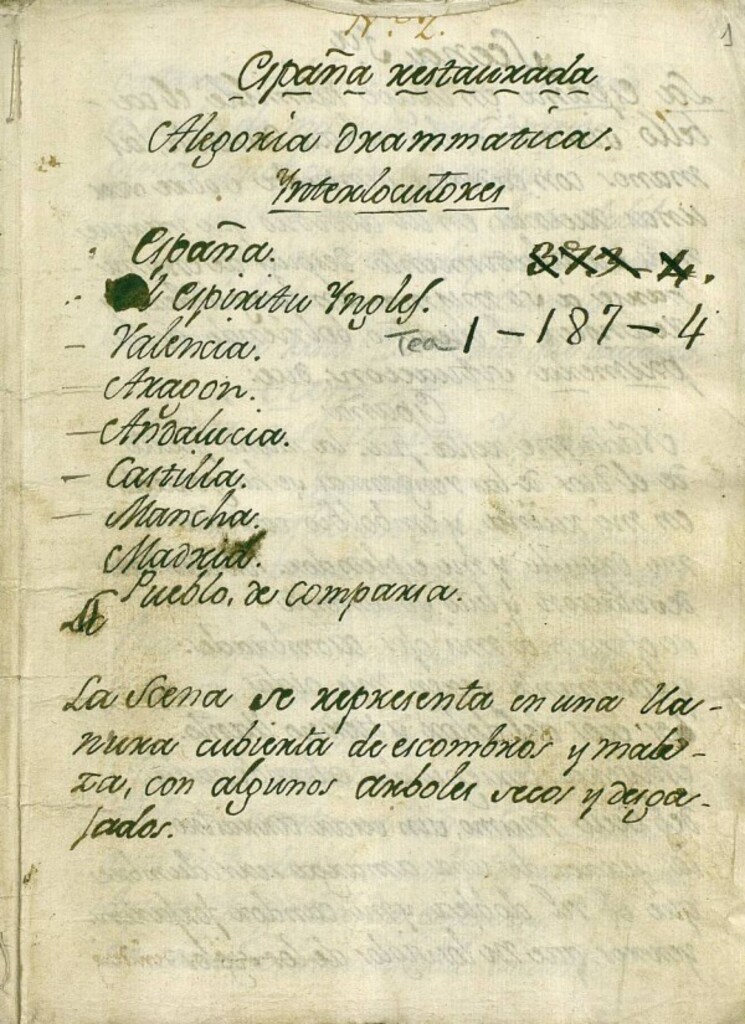 1
España restaurada
Alegoria Drammatica.
Ynterlocutores
España.
373-4.
El Espiritu Yngles.
Tea 1-187-4
- Valencia.
- Aragon.
- Andalucia.
- Castilla.
- Mancha.
Madrid.
Pueblo, de comparsa.
La Scena se representa en una lla-
nura cubierta de escombros y male-
za, con algunos arboles secos y desga-
jados.